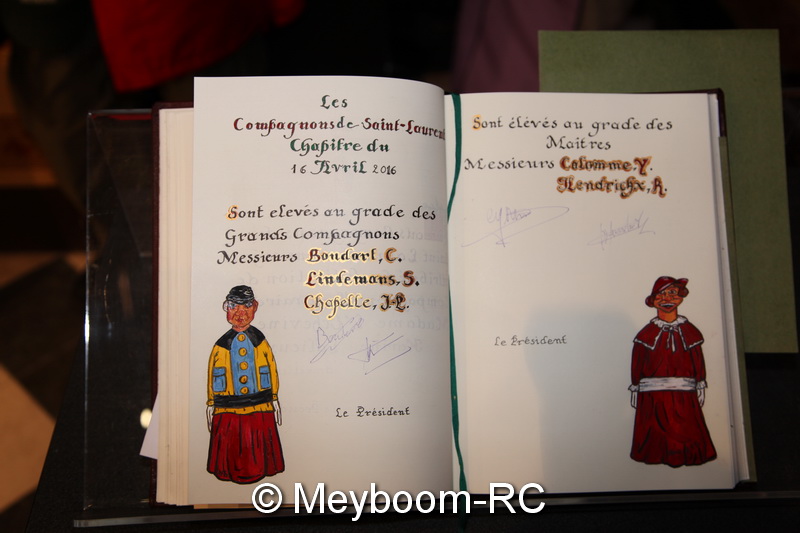 Les
Compagnons de Saint-Laurent
Chapitre du
16 Avril 2016
Sont elevés au grade des
Grands Compagnons
Messieurs Boudart, C.
Lindemans, S.
Chapelle, J-P.
Le Président
Sont élévés au grade des
Maîtres
Messieurs Colomme, Y.
Hendrickx, A.
Le Président
© Meyboom-RC